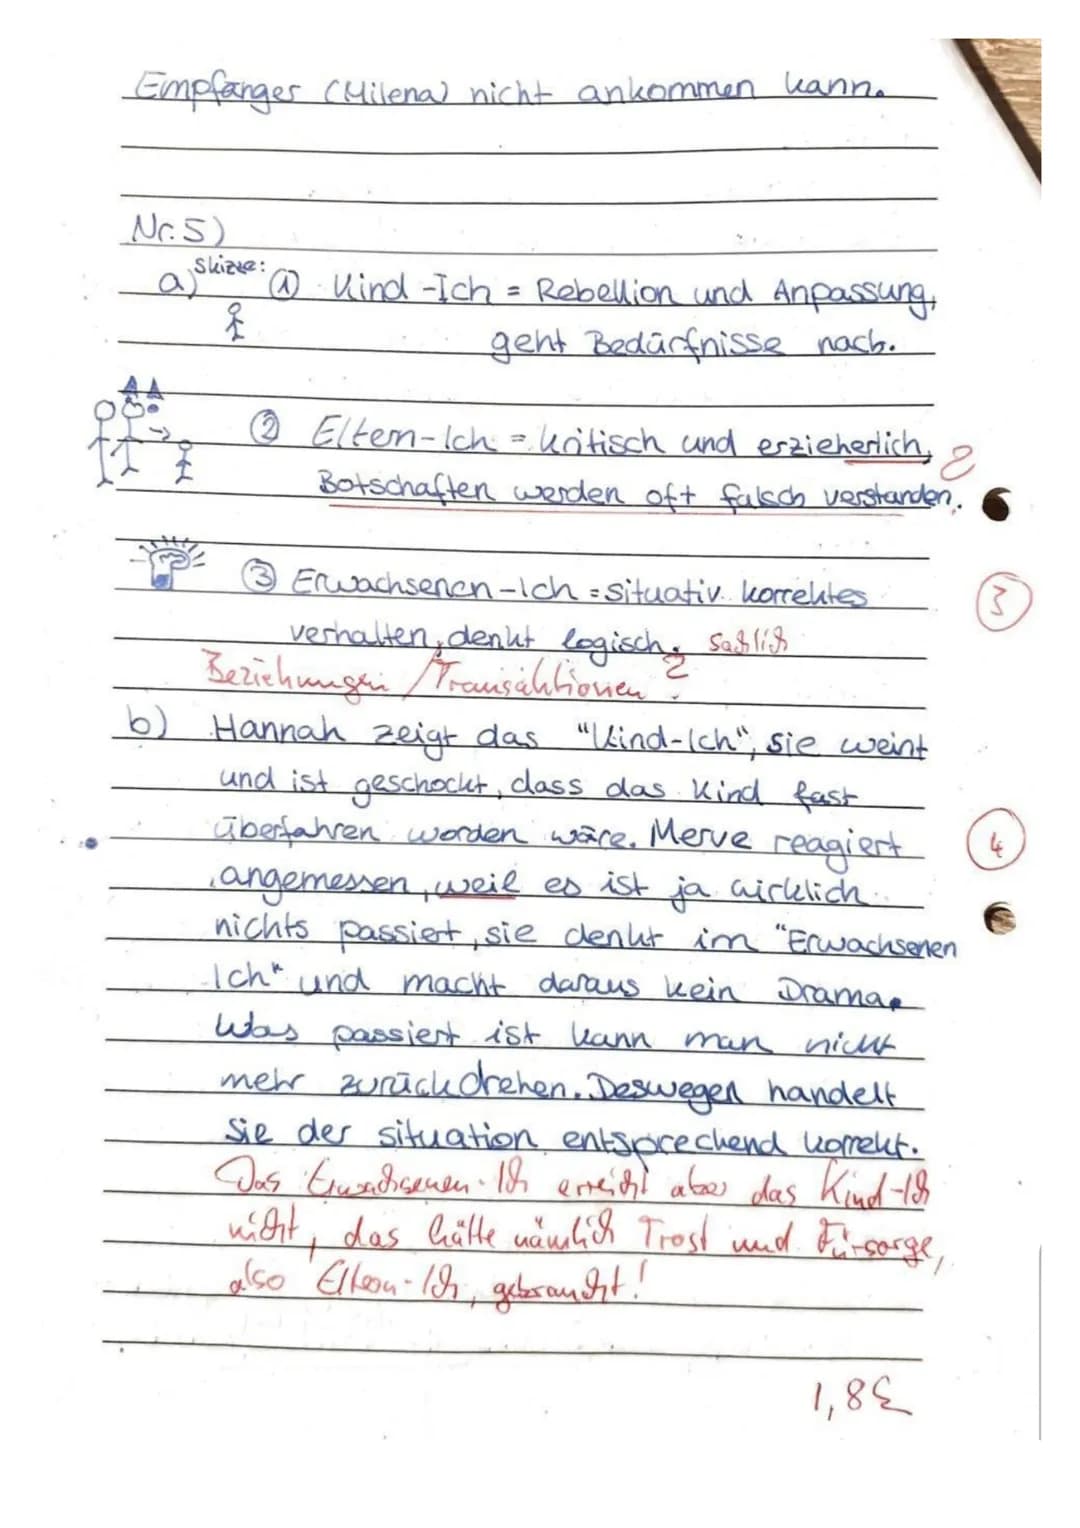 Empfänger (Milena) nicht ankommen kann.
Nr. 5)
a) Skizze: ① Kind-Ich = Rebellion und Anpassung,
geht Bedürfnisse nach.
② Eltern-Ich = kritisch und erzieherlich, ?
Botschaften werden oft falsch verstanden.
③ Erwachsenen-Ich = situativ korrektes
verhalten, denkt logisch. sachlich
3
Beziehungen / Transaktionen ?
b) Hannah zeigt das "Kind-Ich", sie weint
und ist geschockt, dass das Kind fast
überfahren worden wäre. Merve reagiert
4
angemessen, weil es ist ja wirklich
nichts passiert, sie denkt im "Erwachsenen
Ich" und macht daraus kein Drama.
Was passiert ist kann man nicht
mehr zurückdrehen. Deswegen handelt
sie der situation entsprechend korrekt.
Das Erwachsenen-Ich erreicht aber das Kind-Ich
nicht, das hätte nämlich Trost und Fürsorge,
also Eltern-Ich, gebraucht!
1,8